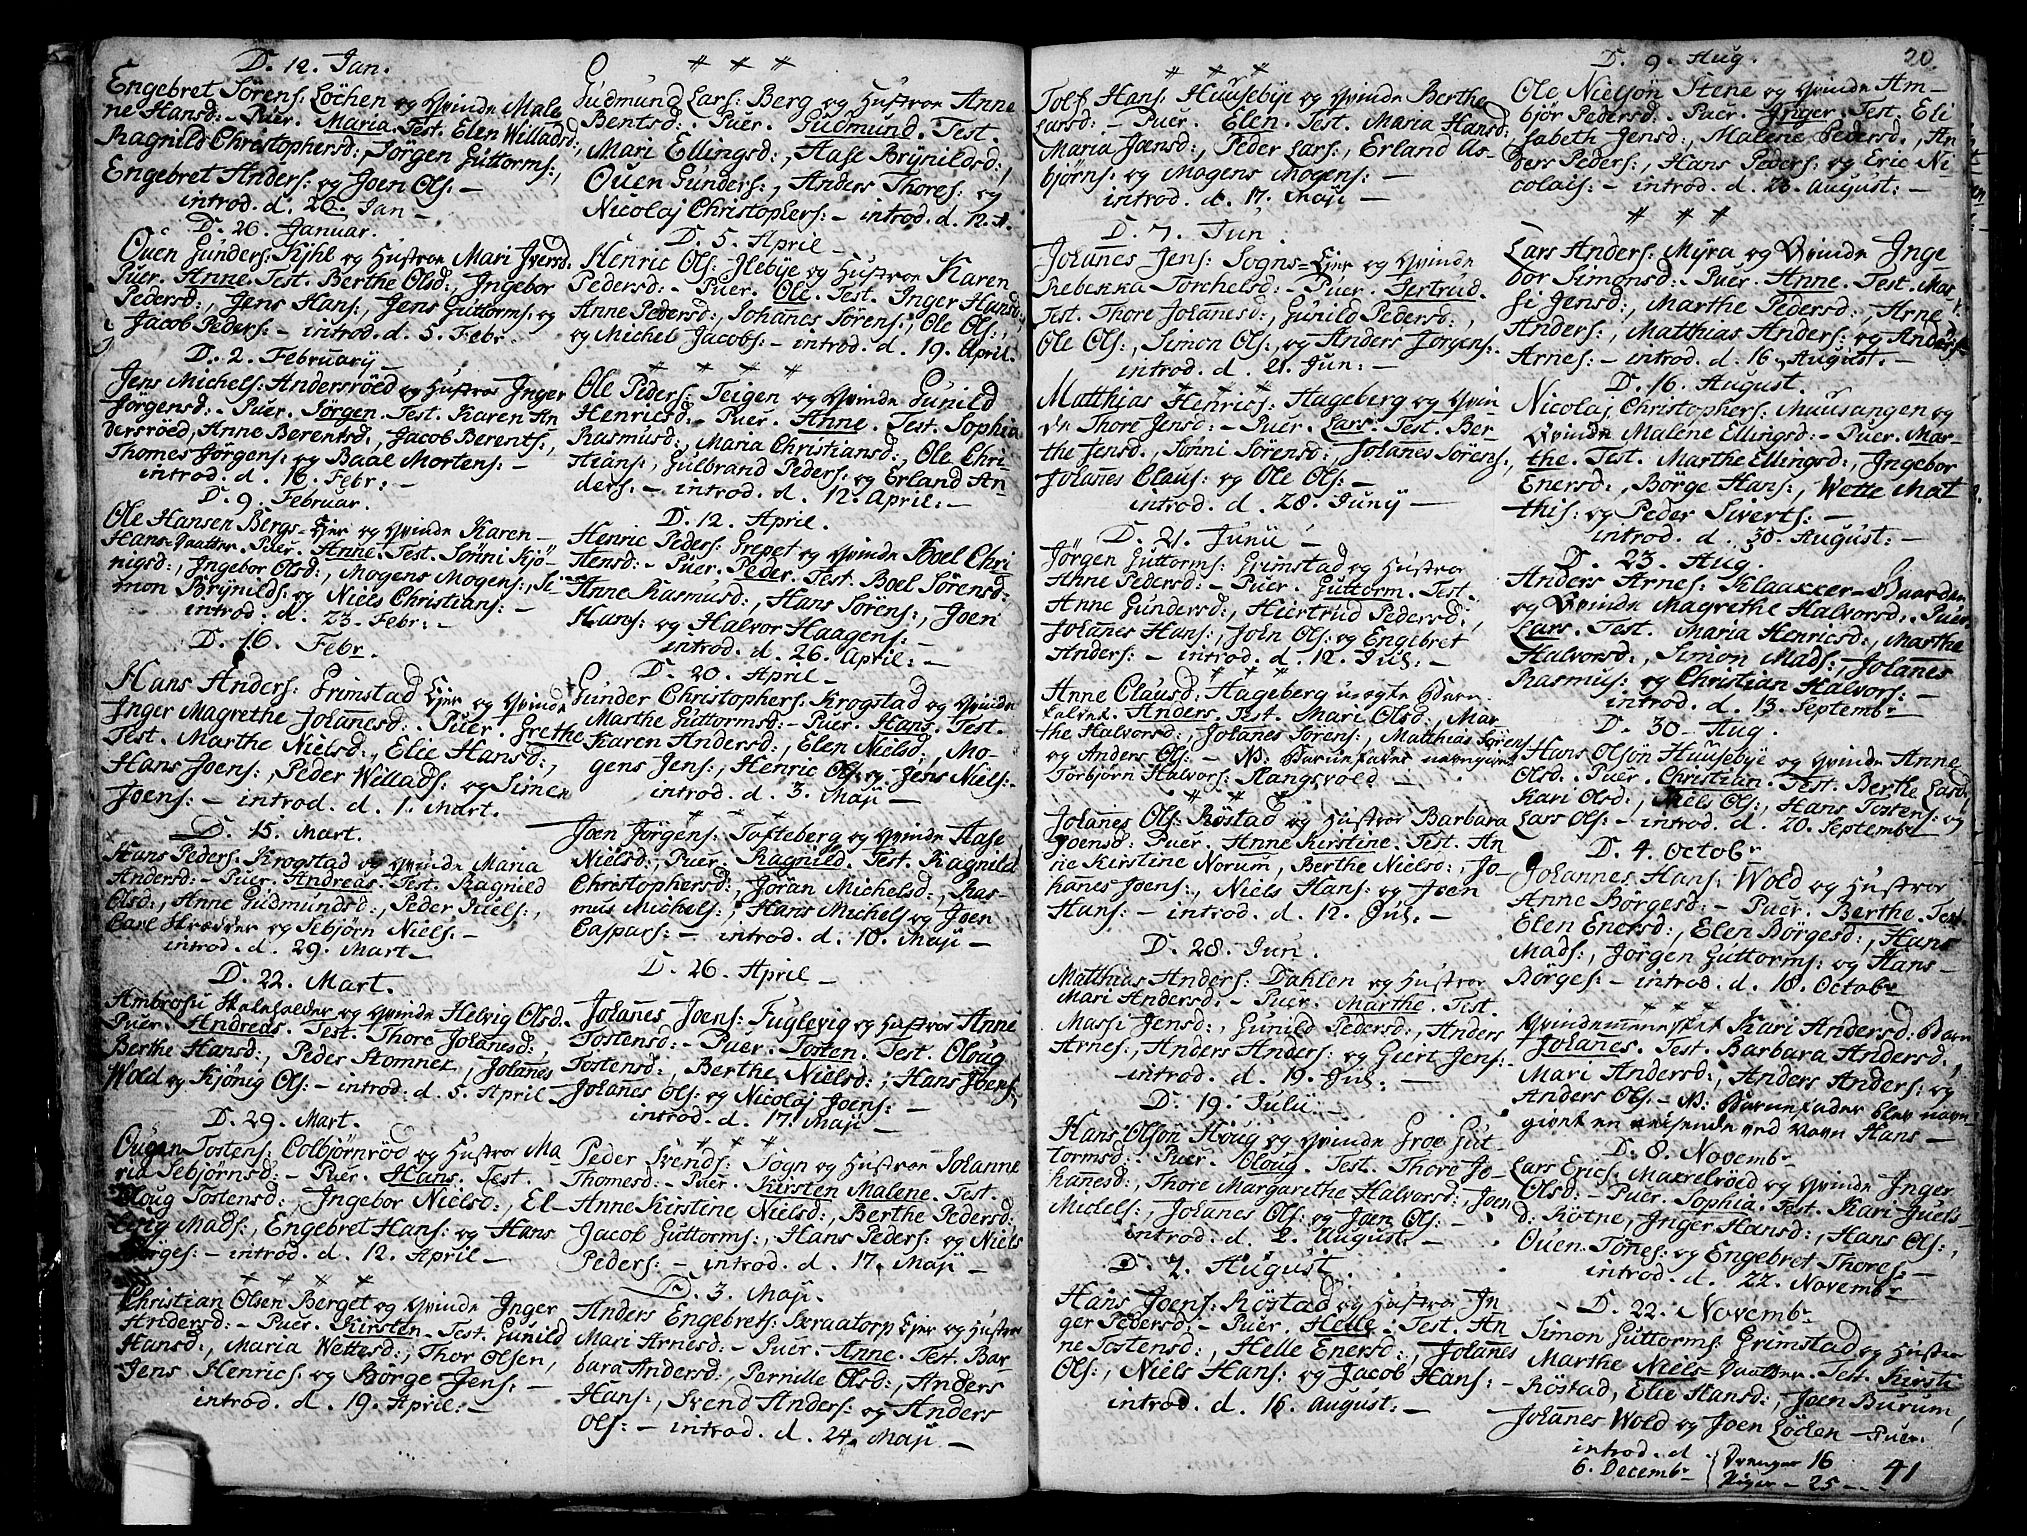 D. 12. Jan.
Engebret Sörens: Löchen og Qvinde Male
ne Hansd: - Puer. Maria. Test. Elen Willadsd:,
Ragnild Christophersd:, Jörgen Guttorms:,
Engebret Anders: og Joen Ols: -
introd. d. 26 Jan -
D. 26. Januar.
Ouen Gunders: Kihl og Hustroe Mari Iversd.
Puer. Anne. Test. Berthe Olsd:, Ingebor
Pedersd:, Jens Hans:, Jens Guttorms: og
Jacob Peders: - introd. d. 5. Febr.
D. 2. Februarÿ
Jens Michels: Andersröed og Hustroe Inger
Jörgensd: - Puer. Jörgen. Test. Karen An
dersröed, Anne Berentsd:, Jacob Berents:,
Thomes Jörgens: og Baal Mortens: -
introd. d. 16. Febr: -
D. 9. Februar.
Ole Hansen Bergs-Ejer og Qvinde Karen
Hans-Daatter. Puer. Anne. Test. Sönni Kjö-
nigsd:, Ingebor Olsd:, Mogens Mogens:, Si-
mon Brÿnilds: og Niels Christians: -
introd. d. 23. Febr: -
D. 16. Febr.
Hans Anders: Grimstad Ejer og Qvinde
Inger Magrethe Johannesd: Puer. Grethe
Test. Marthe Nielsd:, Elie Hansd:,
Hans Joens:, Peder Willads: og Simen
Joens: - introd. d. 1. Mart.
D. 15. Mart.
Hans Peders: Krogstad og Qvinde Maria
Andersd: - Puer. Andreas. Test. Ragnild
Olsd:, Anne Gudmundsd:, Peder Juels:,
Carl Skrædder og Sebjörn Niels: -
introd. d. 29. Mart -
D. 22. Mart.
Ambrosii og Qvinde Helvig Olsd.
Puer. Andreas. Test. Thore Johanesd:
Berthe Hansd:, Peder Stomner, Johanes
Wold og Kjönig Ols: - introd. d. 5. April -
D. 29. Mart.
Ougen Tostens: Colbjörnröd og Hustroe Ma-
ria Sebjörnsd: - Puer. Hans. Test.
Oloug Tostensd:, Ingebor Nielsd:, El-
ling Mads:, Engebret Hans: og Hans
Börges: - introd. d. 12. April -
+ + + +
Christian Olsen Berget og Qvinde Inger
Andersd: - Puer. Kirsten. Test. Gunild
Hansd:, Maria Wettesd:, Thor Olsen,
Jens Henrics: og Börge Jens: -
introd. d. 19. April: -
+ + +
Gudmund Lars: Berg og Hustroe Anne
Bentsd: - Puer. Gudmund. Test.
Mari Ellingsd:, Aase Brÿnildsd:,
Ouen Gunders:, Anders Thores: og
Nicolaj Christophers: - introd. d. 12. A.
D. 5. April -
Henric Ols: Ilebÿe og Hustroe Karen
Pedersd: - Puer. Ole. Test. Inger Hansd:
Anne Pedersd:, Johannes Sörens:, Ole Ols:,
og Michel Jacobs: - introd. d. 19. April.
+ + + +
Ole Peders: Teigen og Qvinde Gunild
Henricsd: - Puer. Anne. Test. Sophia
Rasmusd:, Maria Christiansd:, Ole Chri-
stians:, Gulbrand Peders: og Erland An-
ders: - introd. d. 12. April: -
D. 12. April.
Henric Peders: Grepet og Qvinde Boel Chri
stensd: - Puer. Peder. Test. Boel Sörensd:
Anne Rasmusd:, Hans Sörens:, Joen
Hans: og Halvor Haagens: -
introd. d. 26. April: -
D. 20. April -
Gunder Christophers: Krogstad og Qvinde
Marthe Guttormsd: - Puer. Hans. Test.
Karen Andersd:, Elen Nielsd:, Mo-
gens Jens:, Henric Ols: og Jens Niels: -
introd. d. 3. Maji -
+ + +
Joen Jörgens: Tofteberg og Qvinde Aase
Nielsd:, Puer. Ragnild. Test. Ragnild
Christophersd:, Jöran Michelsd:, Ras-
mus Michels:, Hans Michels og Joen
Caspars: - introd. d. 10. Maji -
D. 26. April -
Johanes Joens: Fuglevig og Hustroe Anne
Tostensd: - Puer. Tosten. Test. Oloug
Tostensd:, Berthe Nielsd:, Hans Joens:,
Johanes Ols: og Nicolaj Joens: -
introd. d. 17. Maji -
+ + +
Peder Svends: Sogn og Hustroe Johanne
Thomesd: - Puer. Kirsten Malene. Test.
Anne Kirstine Nielsd:, Berthe Pedersd:
Jacob Guttorms:, Hans Peders: og Niels
Peders: - introd. d. 17. Maji -
D. 3. Maji.
Anders Engebrets: Ejer og Hustroe
Mari Arnesd: - Puer. Anne. Test. Bar-
bara Andersd:, Pernille Olsd:, Anders
Hans:, Svend Anders: og Anders
Ols: - introd. d. 24. Maji -
+ + +
Tolf Hans: Huusebÿe og Qvinde Berthe
Larsd: - Puer. Elen. Test. Maria Hansd:
Maria Joensd:, Peder Lars:, Erland As-
björns: og Mogens Mogens: -
introd. d. 17. Maji -
D. 7. Jun.
Johanes Jens: Sogns-Ejer og Qvinde
Rebekka Torchelsd: - Puer. Gertrud.
Test. Thore Johanesd:, Gunild Pedersd:,
Ole Ols:, Simon Ols:, og Anders Jörgens:.
introd. d. 21. Jun: -
+ + +
Matthias Henrics: Hageberg og Qvin-
de Thore Jensd: - Puer. Lars. Test. Ber-
the Jensd:, Sönni Sörensd:, Johanes Sörens:,
Johanes Claus: og Ole Ols: -
introd. d. 28. Junÿ -
D. 21. Junii -
Jörgen Guttorms: Grimstad og Hustroe
Anne Pedersd: - Puer. Guttorm. Test.
Anne Gundersd:, Heiertrud Pedersd:,
Johanes Hans:, John Ols: og Engebret
Anders: - introd. d. 12. Jul: -
+ + +
Anne Clausd: Hageberg uægte Barn
kaldet Anders. Test. Mari Olsd:, Mar-
the Halvorsd:, Johanes Sörens:, Matthias Sörens
og Anders Ols: - NB: Barnefader
Torbjörn Halvors: Hangsvold -
+ + +
Johanes Ols: Röstad og Hustroe Barbara
Joensd: Puer. Anne Kirstine. Test. An-
ne Kirstine Norum, Berthe Nielsd:, Jo-
hanes Joens:, Niels Hans: og Joen
Hans: - introd. d. 12. Jul: -
D. 28. Jun.
Matthias Anders: Dahlen og Hustroe
Mari Andersd: - Puer. Marthe. Test.
Massi Jensd:, Gunild Pedersd:, Anders
Arnes:, Anders Anders: og Giert Jens: -
introd. d. 19. Jul: -
D. 19. Julii -
Hans Olsön Houg og Qvinde Groe Gut-
tormsd: - Puer. Oloug. Test. Thore Jo-
hanesd:, Thore Margarethe Halvorsd:, Joen
Michels:, Johanes Ols: og Joen Ols: -
introd. d. 2. August: -
D. 2. August.
Hans Joens: Röstad og Hustroe In-
ger Pedersd: - Puer. Helle. Test. An-
ne Tostensd:, Helle Enersd:, Johanes
Ols:, Niels Hans: og Jacob Hans: -
introd. d. 16. August: -
20.
D. 9. Aug.
Ole Nielsön Stene og Qvinde Am-
björ Pedersd: Puer. Inger. Test. Eli
sabeth Jensd:, Malene Pedersd:, An-
ders Peders:, Hans Peders: og Eric Ni-
colais: - introd. d. 23. August: -
+ + +
Lars Anders: Mÿra og Qvinde Inge
bor Simonsd: - Puer. Anne. Test. Mas-
si Jensd:, Marthe Pedersd:, Arne
Anders:, Matthias Anders: og Anders
Arnes: - introd. d. 16. August -
D. 16. August.
Nicolaj Christophers: Muusangen og
Qvinde Malene Ellingsd: - Puer. Mar-
the. Test. Marthe Ellingsd:, Ingebor
Enersd:, Börge Hans:, Wette Mat
this: og Peder Siverts: -
introd. d. 30. August: -
D. 23. Aug.
Anders Arnes: Klaakker-Gaarden
og Qvinde Magrethe Halvorsd: Puer.
Lars. Test. Maria Henricsd:, Marthe
Halvorsd:, Simon Mads:, Johanes
Rasmus: og Christian Halvors: -
introd. d. 13. Septembr
D. 30. Aug.
Hans Olsön Huusebÿe og Qvinde Anne
Olsd. Puer. Christian. Test. Berthe Larsd.
Kari Olsd:, Niels Ols:, Hans Tostens: og
Lars Ols: - introd. d. 20. Septembr
D. 4. Octobr
Johannes Hans: Wold og Hustroe
Anne Börgesd: - Puer. Berthe. Test.
Elen Enersd:, Elen Dorgesd:, Hans
Mads:, Jörgen Guttorms: og Hans
Börges: - introd. d. 18. Octobr
+ + +
Qvindemennesket Kari Andersd: Barn
Johanes. Test. Barbara Andersd:,
Mari Andersd:, Anders Anders: og
Anders Ols: - NB: Barnefader blev navn
givet en reisende ved Navn Hans -
D. 8. Novembr
Lars Erics: Maxelröed og Qvinde Inger
Olsd: - Puer. Sophia. Test. Kari Juels-
d: Rötne, Inger Hansd:, Hans Ols:,
Ouen Tönes: og Engebret Thores: -
introd. d. 22. Novembr
D. 22. Novembr
Simon Guttorms: Grimstad og Hustroe
Marthe Niels-Daatter. Test. Kirsti
Röstad, Elie Hansd:, Joen Burum,
Johanes Wold og Joen Löchen - Puer.
introd. d.
6. Decembr
Drenger 16
Piger - 25 - - -
41